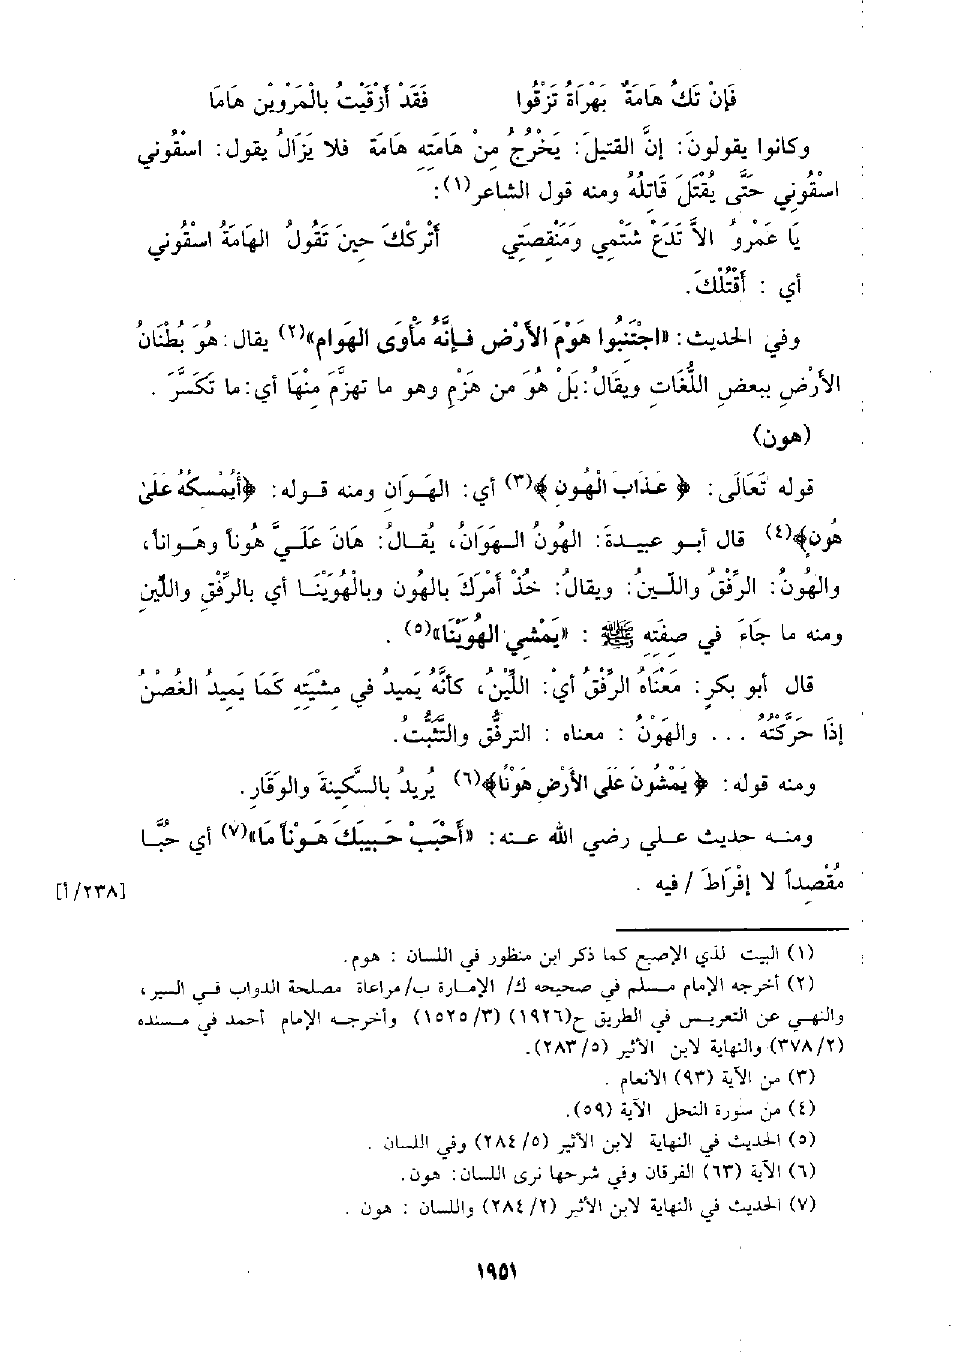 فَإِنْ تَكُ هَامَةٌ بَهْرَاةُ تَزْقُوا فَقَدْ أَزْقَيْتُ بالْمَرْوِيْنِ هَامَا
وكانوا يقولونَ: إنَّ القتيلَ: يَخْرُجُ مِنْ هَامَتِهِ هَامَة فلا يَزَالُ يقول: اسْقُوني
اسْقُوني حَتَّى يُقْتَلَ قَاتِلُهُ ومنه قول الشاعر(١):
يَا عَمْرو الاَّ تَدَعْ شَتْمِي وَمَنْقِصَتِي أَتْرككَ حِينَ تَقُولُ الهَامَةُ اسْقُوني
أي : أَقْتُلْكَ.
وفي الحديث: «اجْتَنِبُوا هَوْمَ الأَرْضِ فَإِنَّهُ مَأْوَى الهَوام»(٢) يقال: هُوَ بُطْنَانُ
الأَرْضِ ببعضِ اللُّغَاتِ ويقالُ: بَلْ هُوَ من هَزْمِ وهو ما تهزَّمَ مِنْهَا أي: ما تَكَسَّرَ .
(هون)
قوله تَعَالَى: ﴿ عَذَابَ الْهُونِ ﴾(٣) أي: الهَوَانِ ومنه قوله: ﴿أَيُمْسِكُهُ عَلَىٰ
هُونٍ﴾(٤) قال أبو عبيدةَ: الهُونُ الهوَانُ، يُقالُ: هَانَ عَلَيَّ هُوناً وهَواناً،
والهُونُ: الرِّفْقُ واللّينُ: ويقالُ: خُذْ أَمْرَكَ بالهُونِ وبالْهُوَيْنَا أي بالرِّفْقِ واللّينِ
ومنه ما جَاءَ في صِفَتِهِ ﷺ : «يَمْشِي الهُوَيْنَا»(٥) .
قال أبو بكرٍ: مَعْنَاهُ الرِّفْقُ أيْ: اللِّيْنُ، كأنَّهُ يَمِيدُ في مِشْيَتِهِ كَمَا يَمِيدُ الغُصْنُ
إذَا حَرَّكْتُهُ ... والهَوْنُ : معناه : الترفُّق والتَّثَبُّتُ.
ومنه قولهُ: ﴿ يَمْشُونَ عَلَى الأَرْضِ هَوْنًا﴾(٦) يُرِيدُ بالسَّكِينَةِ والوَقَارِ.
ومنه حديث علي رضي الله عنه: «أَحْبِبْ حَبِيبَكَ هَوْناً مَا»(٧) أي حُبًّا
مُقْصِداً لا إفْرَاطَ / فيه .
[٢٣٨/أ]
(١) البيت لذي الإصبع كما ذكر ابن منظور في اللسان : هوم.
(٢) أخرجه الإمام مسلم في صحيحه ك/ الإمارة ب/ مراعاة مصلحة الدواب في السير،
والنهي عن التعريس في الطريق ح(١٩٢٦) (٣/ ١٥٢٥) وأخرجه الإمام أحمد في مسنده
(٢/ ٣٧٨) والنهاية لابن الأثير (٥/ ٢٨٣).
(٣) من الآية (٩٣) الانعام .
(٤) من سورة النحل الآية (٥٩).
(٥) الحديث في النهاية لابن الأثير (٥/ ٢٨٤) وفي اللسان .
(٦) الآية (٦٣) الفرقان وفي شرحها نرى اللسان: هون.
(٧) الحديث في النهاية لابن الأثير (٢/ ٢٨٤) واللسان : هون .
١٩٥١